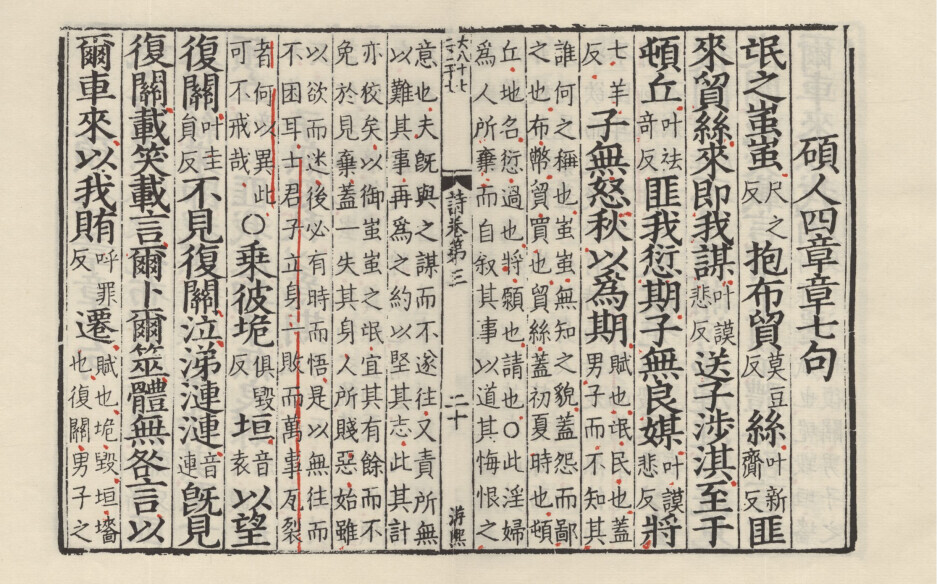 碩人四章章七句
氓之蚩蚩尺之反抱布貿莫豆反絲叶新齎反匪
來貿絲來即我謀叶謨悲反送子涉淇至于
頓丘叶袪奇反匪我愆期子無良媒叶謨悲反將
七羊反子無怒秋以為期賦也氓民也蓋男子而不知其
誰何之稱也蚩蚩無知之貌蓋怨而鄙
之也布幣貿買也貿絲蓋初夏時也頓
丘地名愆過也將願也請也○此淫婦
為人所棄而自叙其事以道其悔恨之
大八十七
詩卷第三
二十
游熈
意也夫旣與之謀而不遂往又責所無
以難其事再為之約以堅其志此其計
亦狡矣以御蚩蚩之氓宜其有餘而不
免於見棄蓋一失其身人所賤惡始雖
以欲而迷後必有時而悟是以無往而
不困耳士君子立身一敗而萬事瓦裂
者何以異此可不戒哉○乘彼垝俱毀反垣音袁以望
復關叶圭貟反不見復關泣涕漣漣音連旣見
復關載笑載言爾卜爾筮體無咎言以
爾車來以我賄呼罪反遷賦也垝毀垣墻也復關男子之